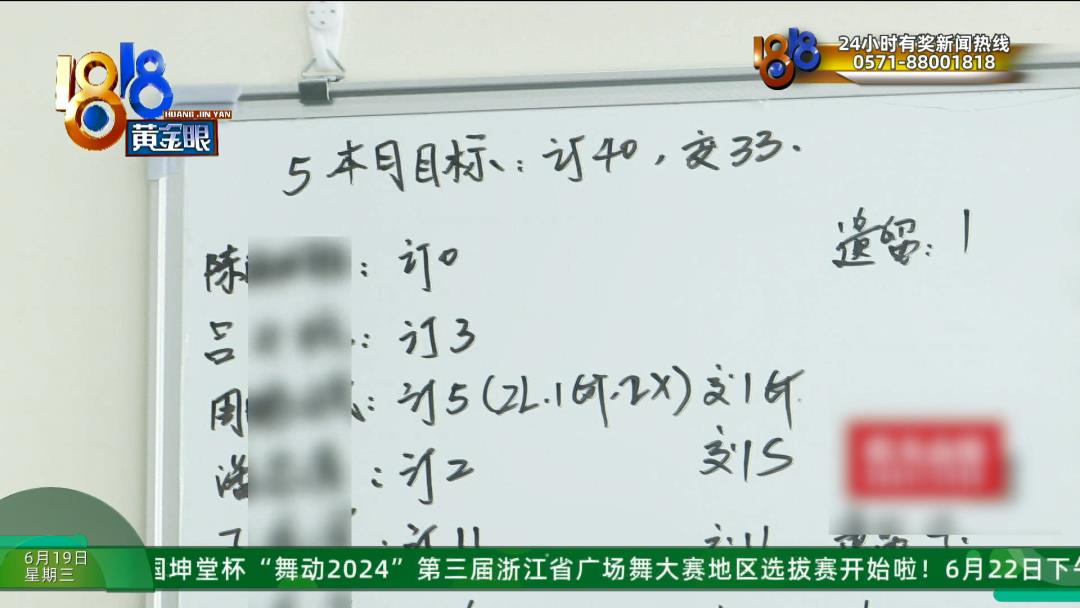 1818
HUANG JIN YAN
黄金眼
1818
24小时有奖新闻热线
0571-88001818
5 本月目标：订40，交33.
遗留：1
陈：订0
吕：订3
周：订5(2L.1GT.2X) 交1GT.
潘：订2 交1S
6月19日
星期三
国坤堂杯“舞动2024”第三届浙江省广场舞大赛地区选拔赛开始啦！6月22日下午